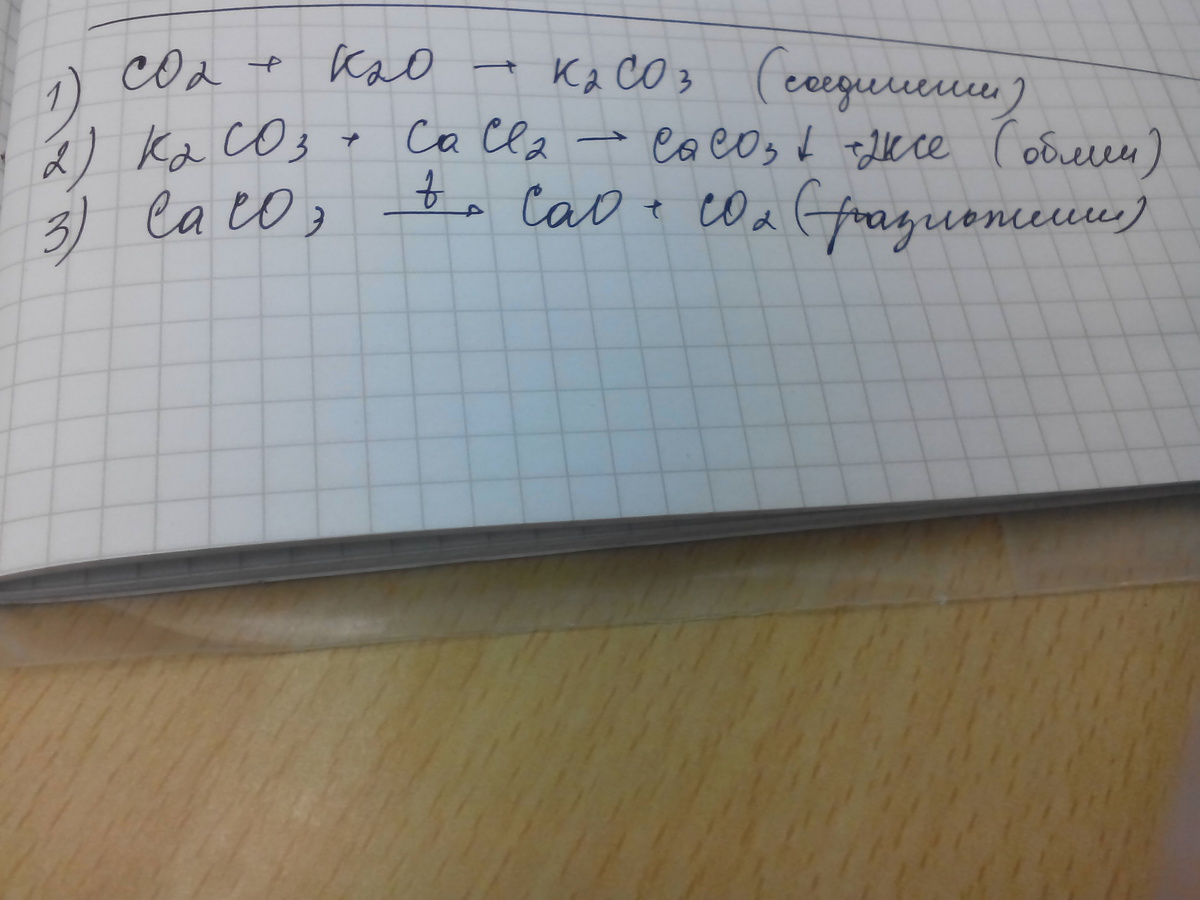 1) CO2 + K2O → K2CO3 (соединении)
2) K2CO3 + CaCl2 → CaCO3↓ +2KCl (обмен)
3) CaCO3 t→ CaO + CO2 (разложении)